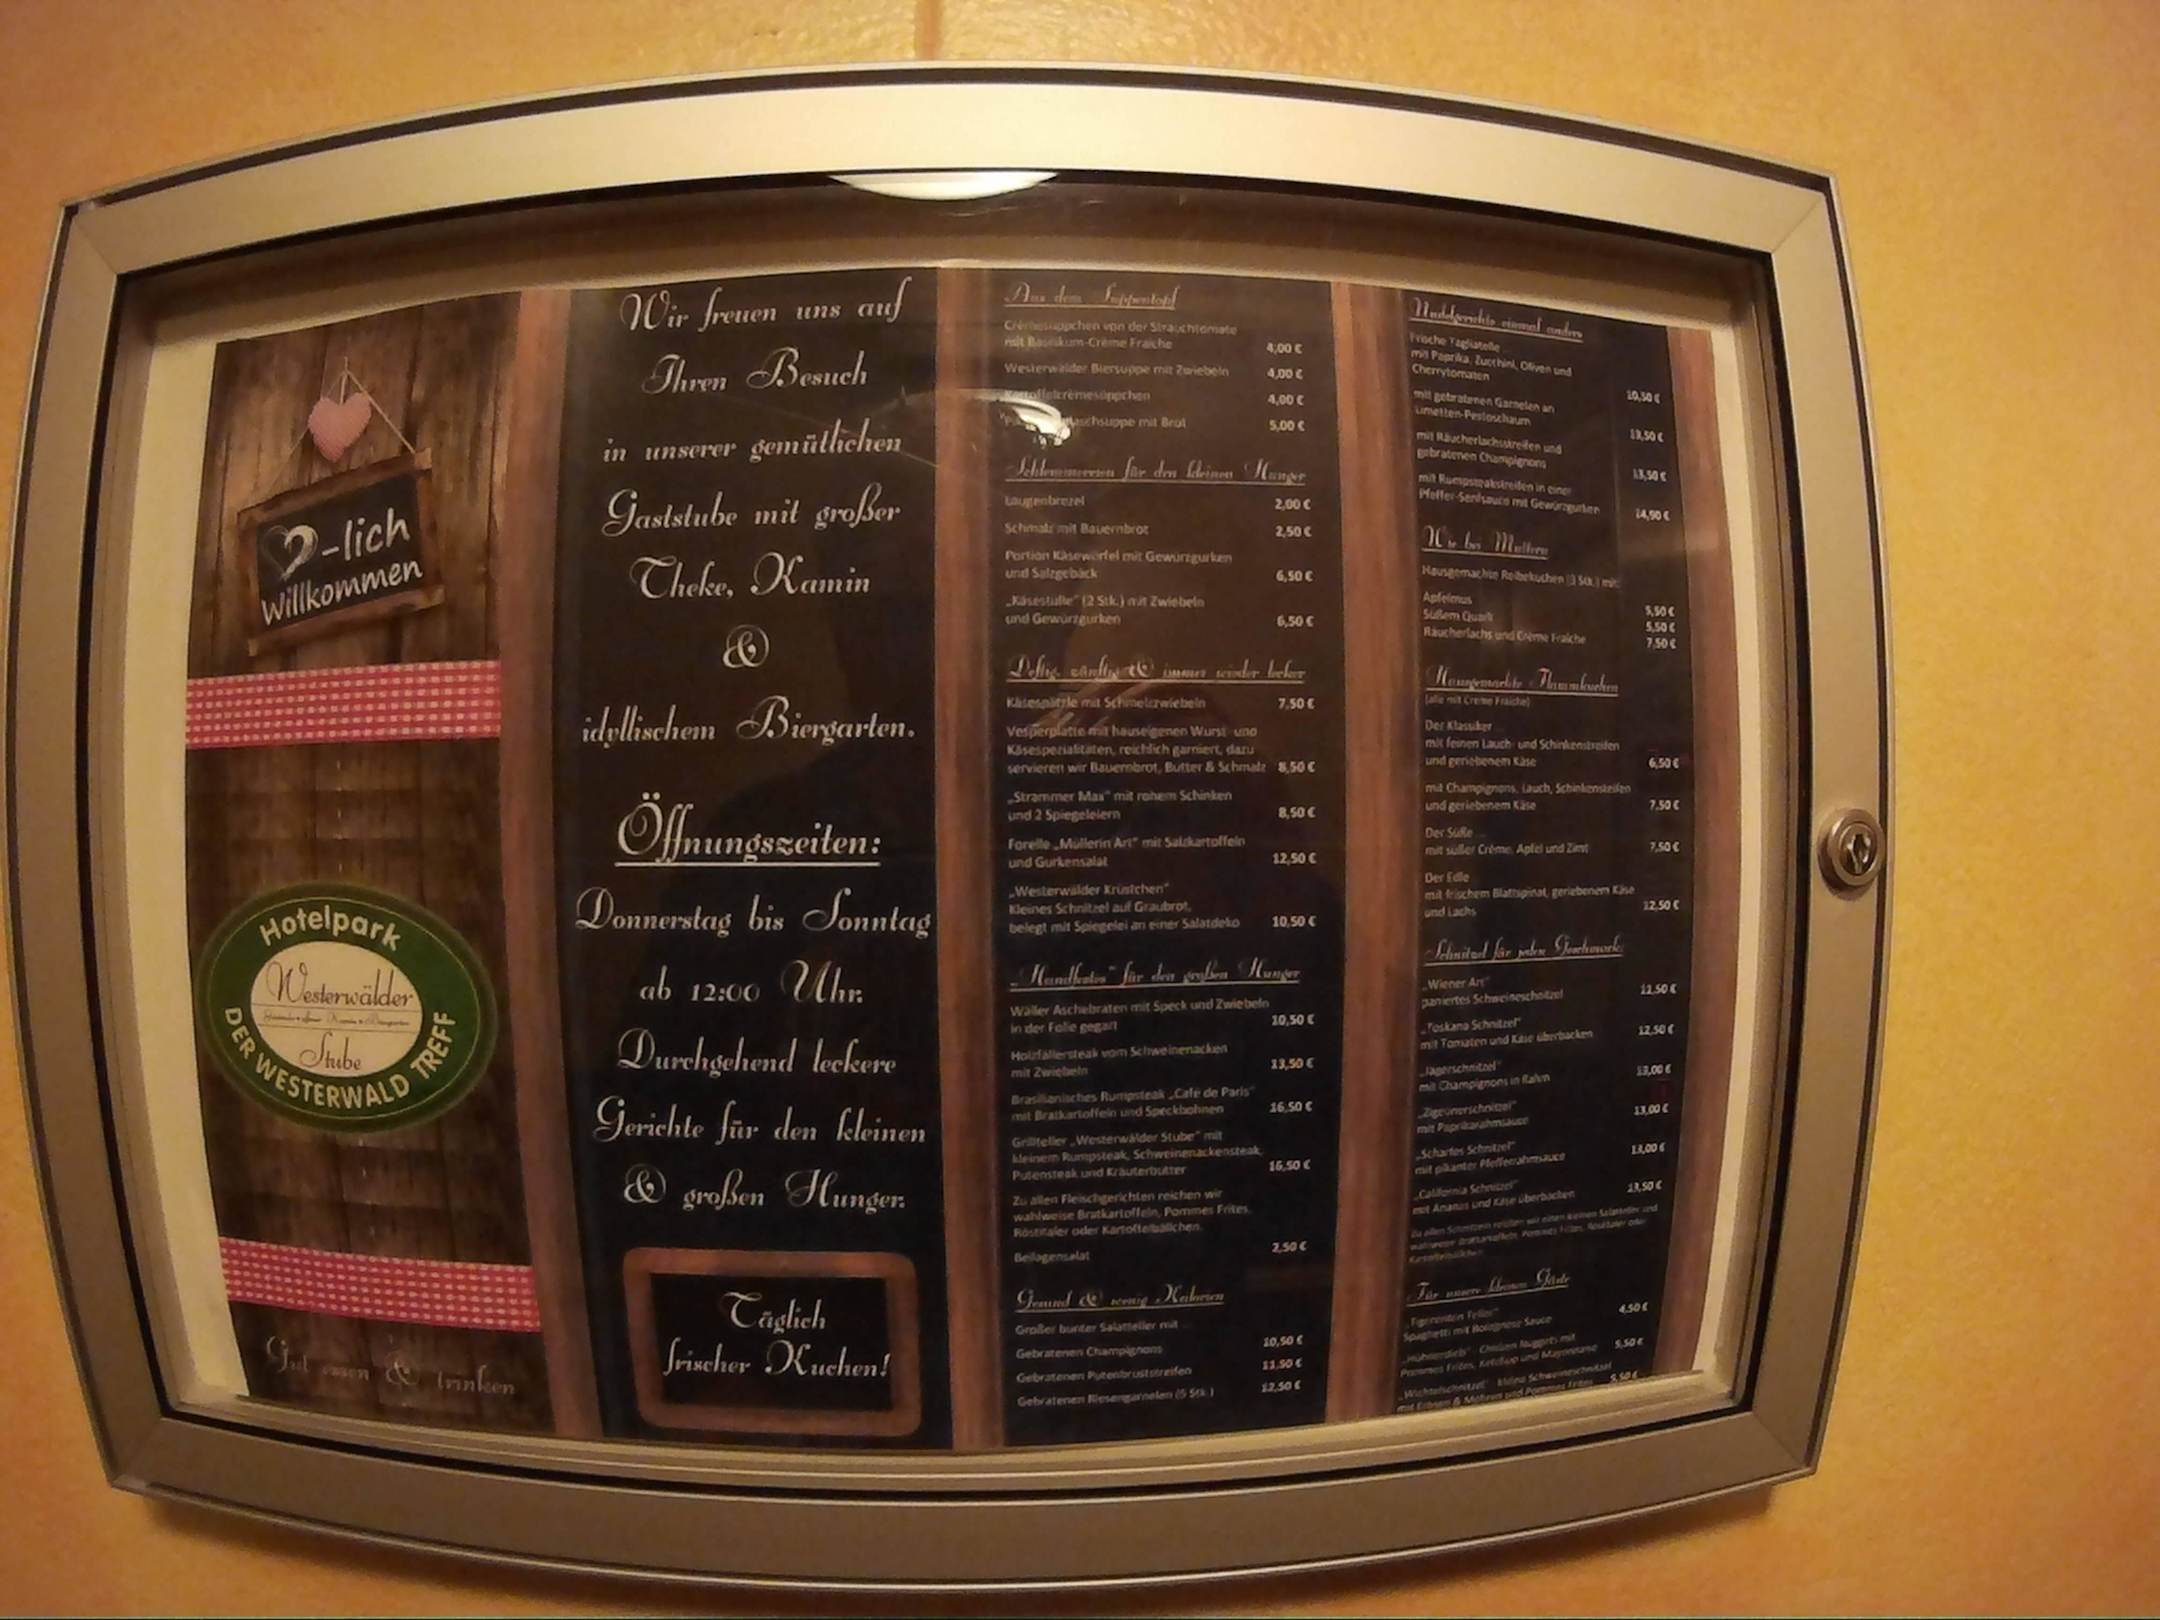 -lich
Willkommen
Hotelpark
Westerwälder
Stube
DER WESTERWALD TREFF
Gut essen & trinken
Wir freuen uns auf
Ihren Besuch
in unserer gemütlichen
Gaststube mit großer
Theke, Kamin
&
idyllischem Biergarten.
Öffnungszeiten:
Donnerstag bis Sonntag
ab 12:00 Uhr.
Durchgehend leckere
Gerichte für den kleinen
& großen Hunger.
Täglich
frischer Kuchen!
Aus dem Suppentopf
Crèmesüppchen von der Strauchtomate
mit Basilikum-Crème Fraîche 4,00 €
Westerwälder Biersuppe mit Zwiebeln 4,00 €
Kartoffelcrèmesüppchen 4,00 €
mit Brot 5,00 €
Schlemmereien für den kleinen Hunger
Laugenbrezel 2,00 €
Schmalz mit Bauernbrot 2,50 €
Portion Käsewürfel mit Gewürzgurken
und Salzgebäck 6,50 €
„Käsestulle“ (2 Stk.) mit Zwiebeln
und Gewürzgurken 6,50 €
Deftig, zünftig & immer wieder lecker
Käsespätzle mit Schmelzzwiebeln 7,50 €
Vesperplatte mit hauseigenen Wurst- und
Käsespezialitäten, reichlich garniert, dazu
servieren wir Bauernbrot, Butter & Schmalz 8,50 €
„Strammer Max“ mit rohem Schinken
und 2 Spiegeleiern 8,50 €
Forelle „Müllerin Art“ mit Salzkartoffeln
und Gurkensalat 12,50 €
„Westerwälder Krüstchen“
Kleines Schnitzel auf Graubrot,
belegt mit Spiegelei an einer Salatdeko 10,50 €
„Handfestes“ für den großen Hunger
Wäller Aschebraten mit Speck und Zwiebeln
in der Folie gegart 10,50 €
Holzfällersteak vom Schweinenacken
mit Zwiebeln 13,50 €
Brasilianisches Rumpsteak „Café de Paris“
mit Bratkartoffeln und Speckbohnen 16,50 €
Grillteller „Westerwälder Stube“ mit
kleinem Rumpsteak, Schweinenackensteak,
Putensteak und Kräuterbutter 16,50 €
Zu allen Fleischgerichten reichen wir
wahlweise Bratkartoffeln, Pommes Frites,
Röstitaler oder Kartoffelbällchen.
Beilagensalat 2,50 €
Gesund & wenig Kalorien
Großer bunter Salatteller mit ...
Gebratenen Champignons 10,50 €
Gebratenen Putenbruststreifen 11,50 €
Gebratenen Riesengarnelen (5 Stk.) 12,50 €
Nudelgerichte einmal anders
Frische Tagliatelle ...
mit Paprika, Zucchini, Oliven und
Cherrytomaten 10,50 €
mit gebratenen Garnelen an
Limetten-Pestoschaum 13,50 €
mit Räucherlachsstreifen und
gebratenen Champignons 13,50 €
mit Rumpsteakstreifen in einer
Pfeffer-Senfsauce mit Gewürzgurken 14,50 €
Wie bei Muttern
Hausgemachte Reibekuchen (3 Stk.) mit:
Apfelmus 5,50 €
Süßem Quark 5,50 €
Räucherlachs und Crème Fraîche 7,50 €
Hausgemachte Flammkuchen
(alle mit Crème Fraîche)
Der Klassiker ...
mit feinen Lauch- und Schinkenstreifen
und geriebenem Käse 6,50 €
mit Champignons, Lauch, Schinkenstreifen
und geriebenem Käse 7,50 €
Der Süße ...
mit süßer Crème, Apfel und Zimt 7,50 €
Der Edle
mit frischem Blattspinat, geriebenem Käse
und Lachs 12,50 €
Schnitzel für jeden Geschmack
„Wiener Art“
paniertes Schweineschnitzel 11,50 €
„Toskana Schnitzel“
mit Tomaten und Käse überbacken 12,50 €
„Jägerschnitzel“
mit Champignons in Rahm 13,00 €
„Zigeunerschnitzel“
mit Paprikarahmsauce 13,00 €
„Scharfes Schnitzel“
mit pikanter Pfefferrahmsauce 13,00 €
„California Schnitzel“
mit Ananas und Käse überbacken 13,50 €
Zu allen Schnitzeln reichen wir einen kleinen Salatteller und
wahlweise Bratkartoffeln, Pommes Frites, Röstitaler oder
Kartoffelbällchen.
Für unsere kleinen Gäste
„Tigerenten Teller“
Spaghetti mit Bolognese Sauce 4,50 €
„Hühnerdieb“ - Chicken Nuggets mit
Pommes Frites, Ketchup und Mayonnaise 5,50 €
„Wichtelschnitzel“ - kleine Schweineschnitzel
mit Erbsen & Möhren und Pommes Frites 5,50 €